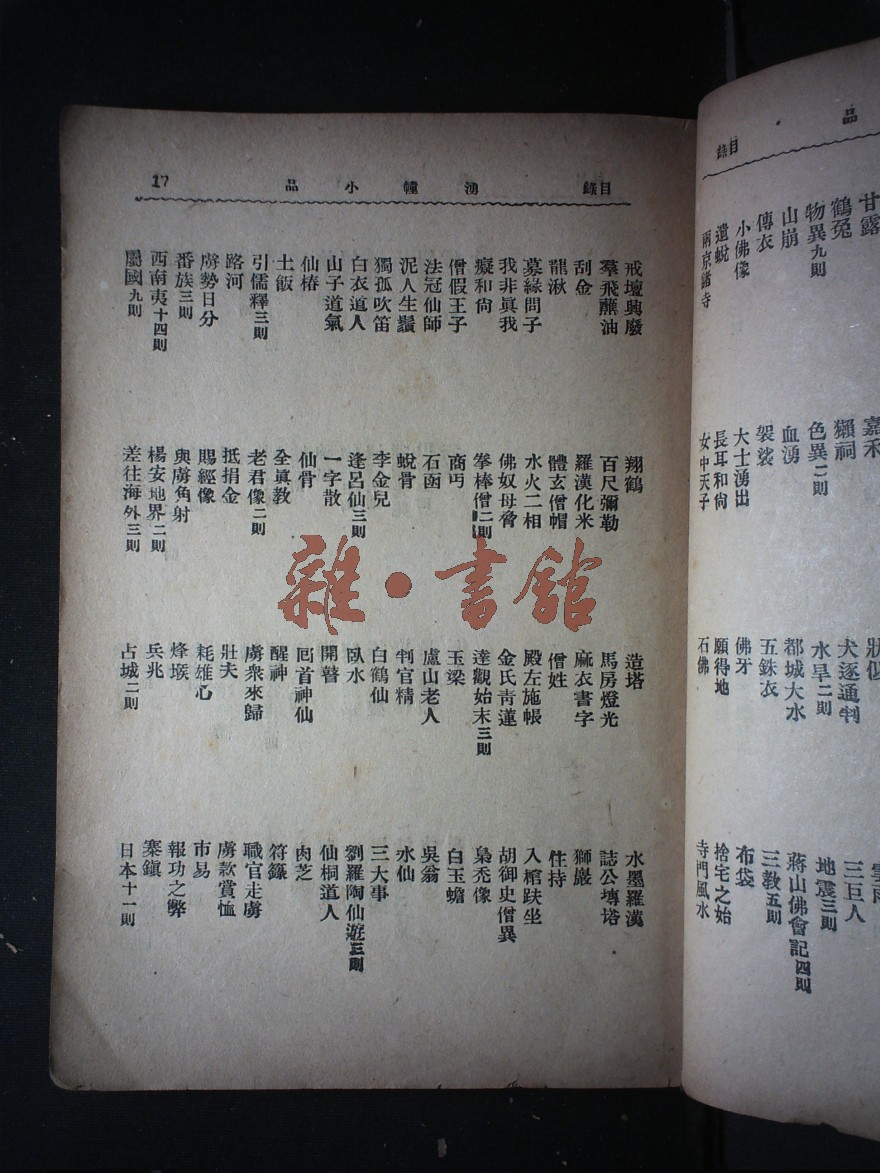 品 目錄
甘露 嘉禾 狀似
鶴冤 獺祠 犬逐通判 三巨人
物異九則 色異二則 水旱二則 地震三則
山崩 血湧 都城大水 蔣山佛會記四則
傳衣 袈裟 五銖衣 三教五則
小佛像 大士湧出 佛牙 布袋
遺蛻 長耳和尙 願得地 捨宅之始
兩京諸寺 女中天子 石佛 寺門風水
目錄 湧幢小品 17
戒壇興廢 翔鶴 造塔 水墨羅漢
羣飛蘸油 百尺彌勒 馬房燈光 誌公塼塔
刮金 羅漢化米 麻衣書字 獅巖
龍湫 體玄僧帽 僧姓 住持
募緣問子 水火二相 殿左施帳 入棺趺坐
我非眞我 佛奴母脅 金氏靑蓮 胡御史僧異
癡和尙 拳棒僧二則 達觀始末三則 梟禿像
僧假王子 商丐 玉梁 白玉蟾
法冠仙師 石函 盧山老人 吳翁
泥人生鬚 蛻骨 判官精 水仙
獨孤吹笛 李金兒 白鶴仙 三大事
白衣道人 逢呂仙三則 臥水 劉羅陶仙遊三則
山子道氣 一字散 開瞽 仙桐道人
仙椿 仙骨 囘首神仙 肉芝
土飯 全眞教 醒神 符籙
引儒釋三則 老君像二則 虜衆來歸 職官走虜
路河 抵捐金 壯夫 虜款賞恤
虜勢日分 賜經像 耗雄心 市易
番族三則 與虜角射 烽堠 報功之弊
西南夷十四則 楊安地界二則 兵兆 寨鎭
屬國九則 差往海外三則 占城二則 日本十一則
雜·書館